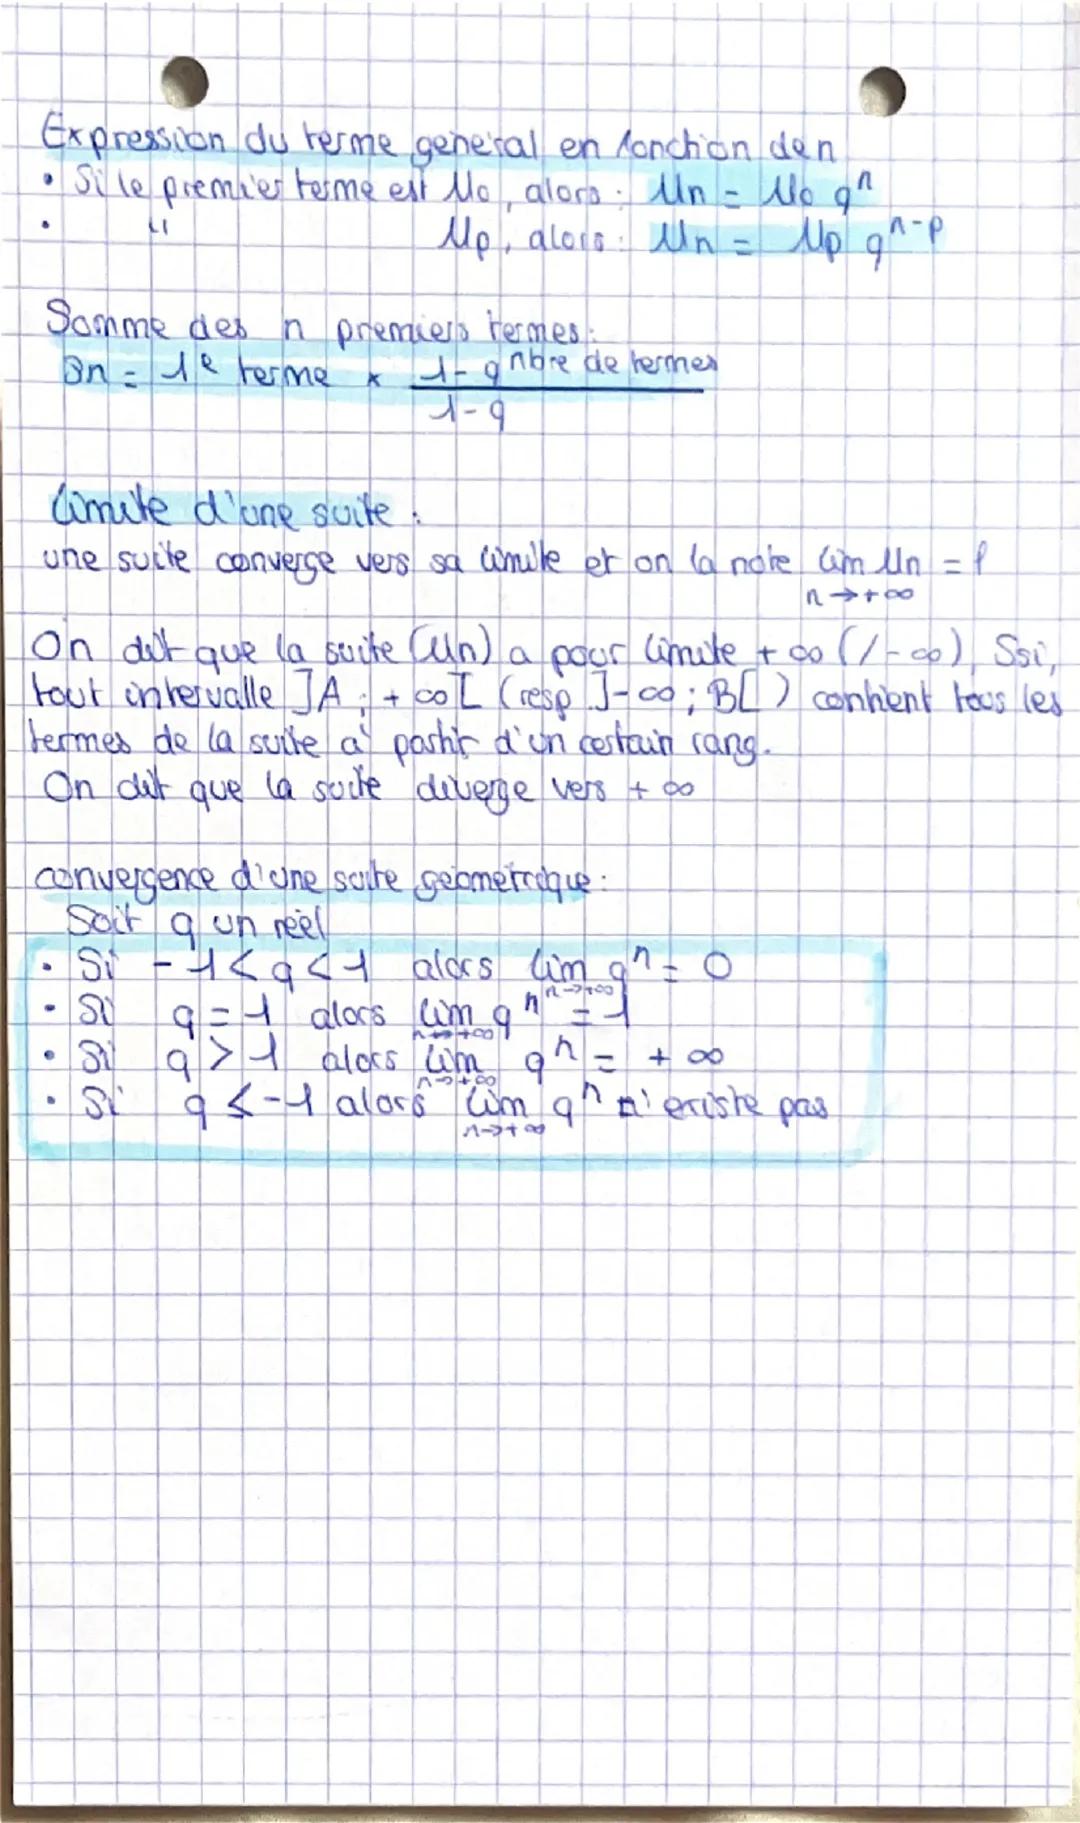 Expression du terme général en fonction de n
• Si le premier terme est U₀, alors : Un = U₀ qⁿ
• " Up, alors : Un = Up qⁿ⁻ᵖ
Somme des n premiers termes :
Sn = 1ᵉ terme × 1 - q^nbre de termes
1 - q
Limite d'une suite :
une suite converge vers sa limite et on la note lim Un = l
n → +∞
On dit que la suite (Un) a pour limite +∞ (/-∞), Ssi,
tout intervalle ]A ; +∞[ (resp. ]-∞ ; B[ ) contient tous les
termes de la suite à partir d'un certain rang.
On dit que la suite diverge vers +∞
convergence d'une suite géométrique :
Soit q un réel
• Si -1 < q < 1 alors lim qⁿ = 0
n→+∞
• Si q = 1 alors lim qⁿ = 1
n→+∞
• Si q > 1 alors lim qⁿ = +∞
n→+∞
• Si q ≤ -1 alors lim qⁿ n'existe pas
n→+∞